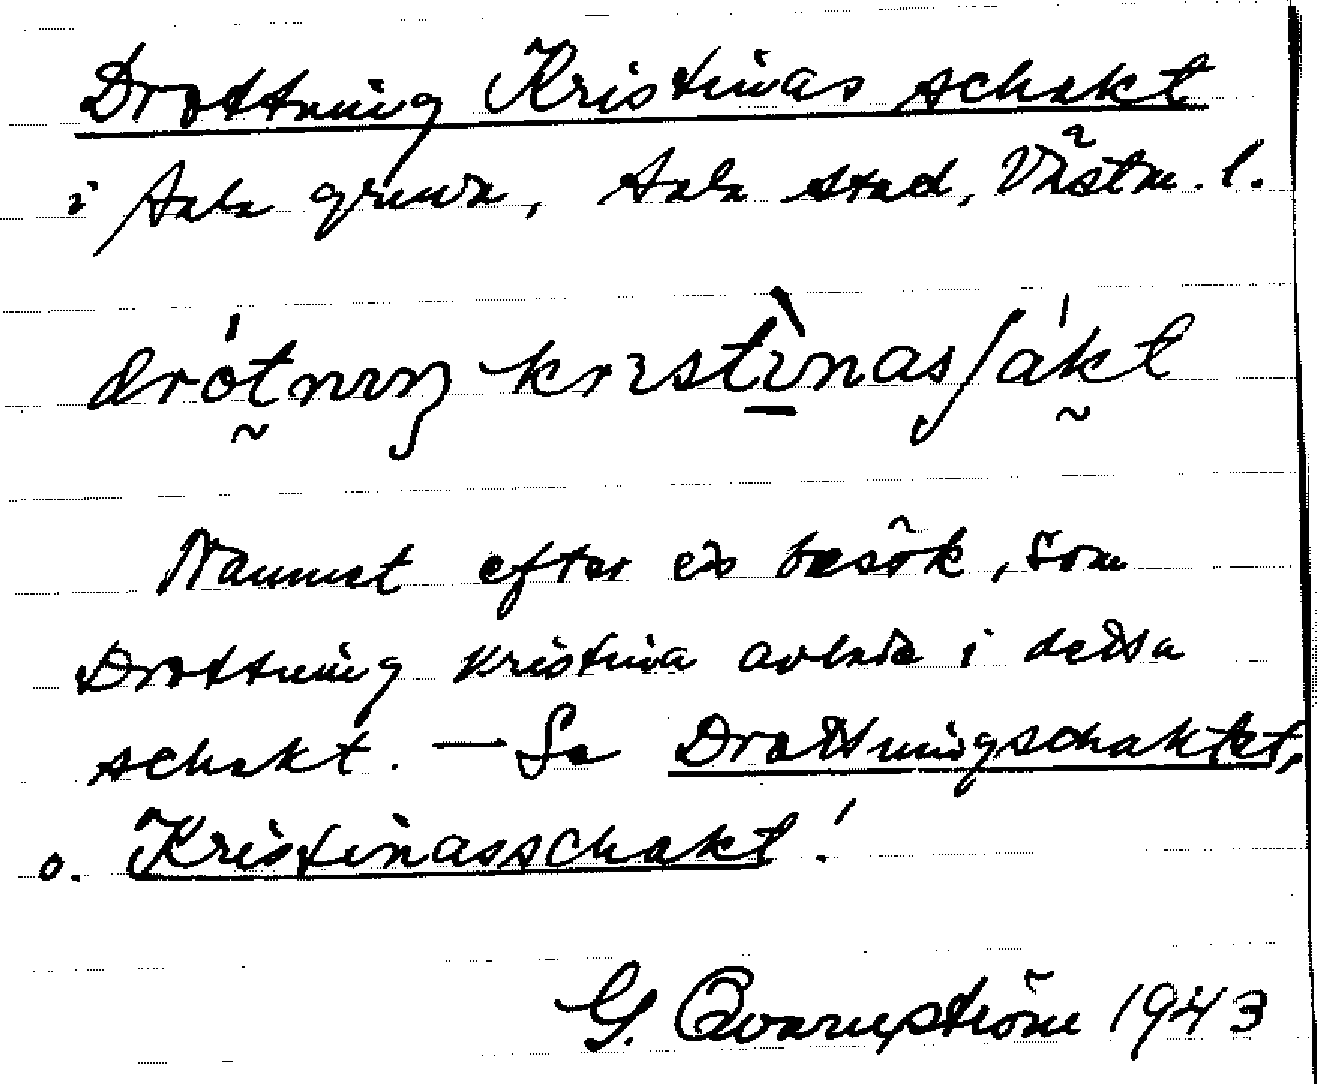 Drottning Kristinas schakt
i Sala gruva, Sala stad, Västm. l.
drótnıŋ krıstìnasʃákt
Namnet efter ett besök, som
Drottning Kristina avlade i detta
schakt. — Se Drottningschaktet,
o. Kristinasschakt!
G. Qvarnström 1943